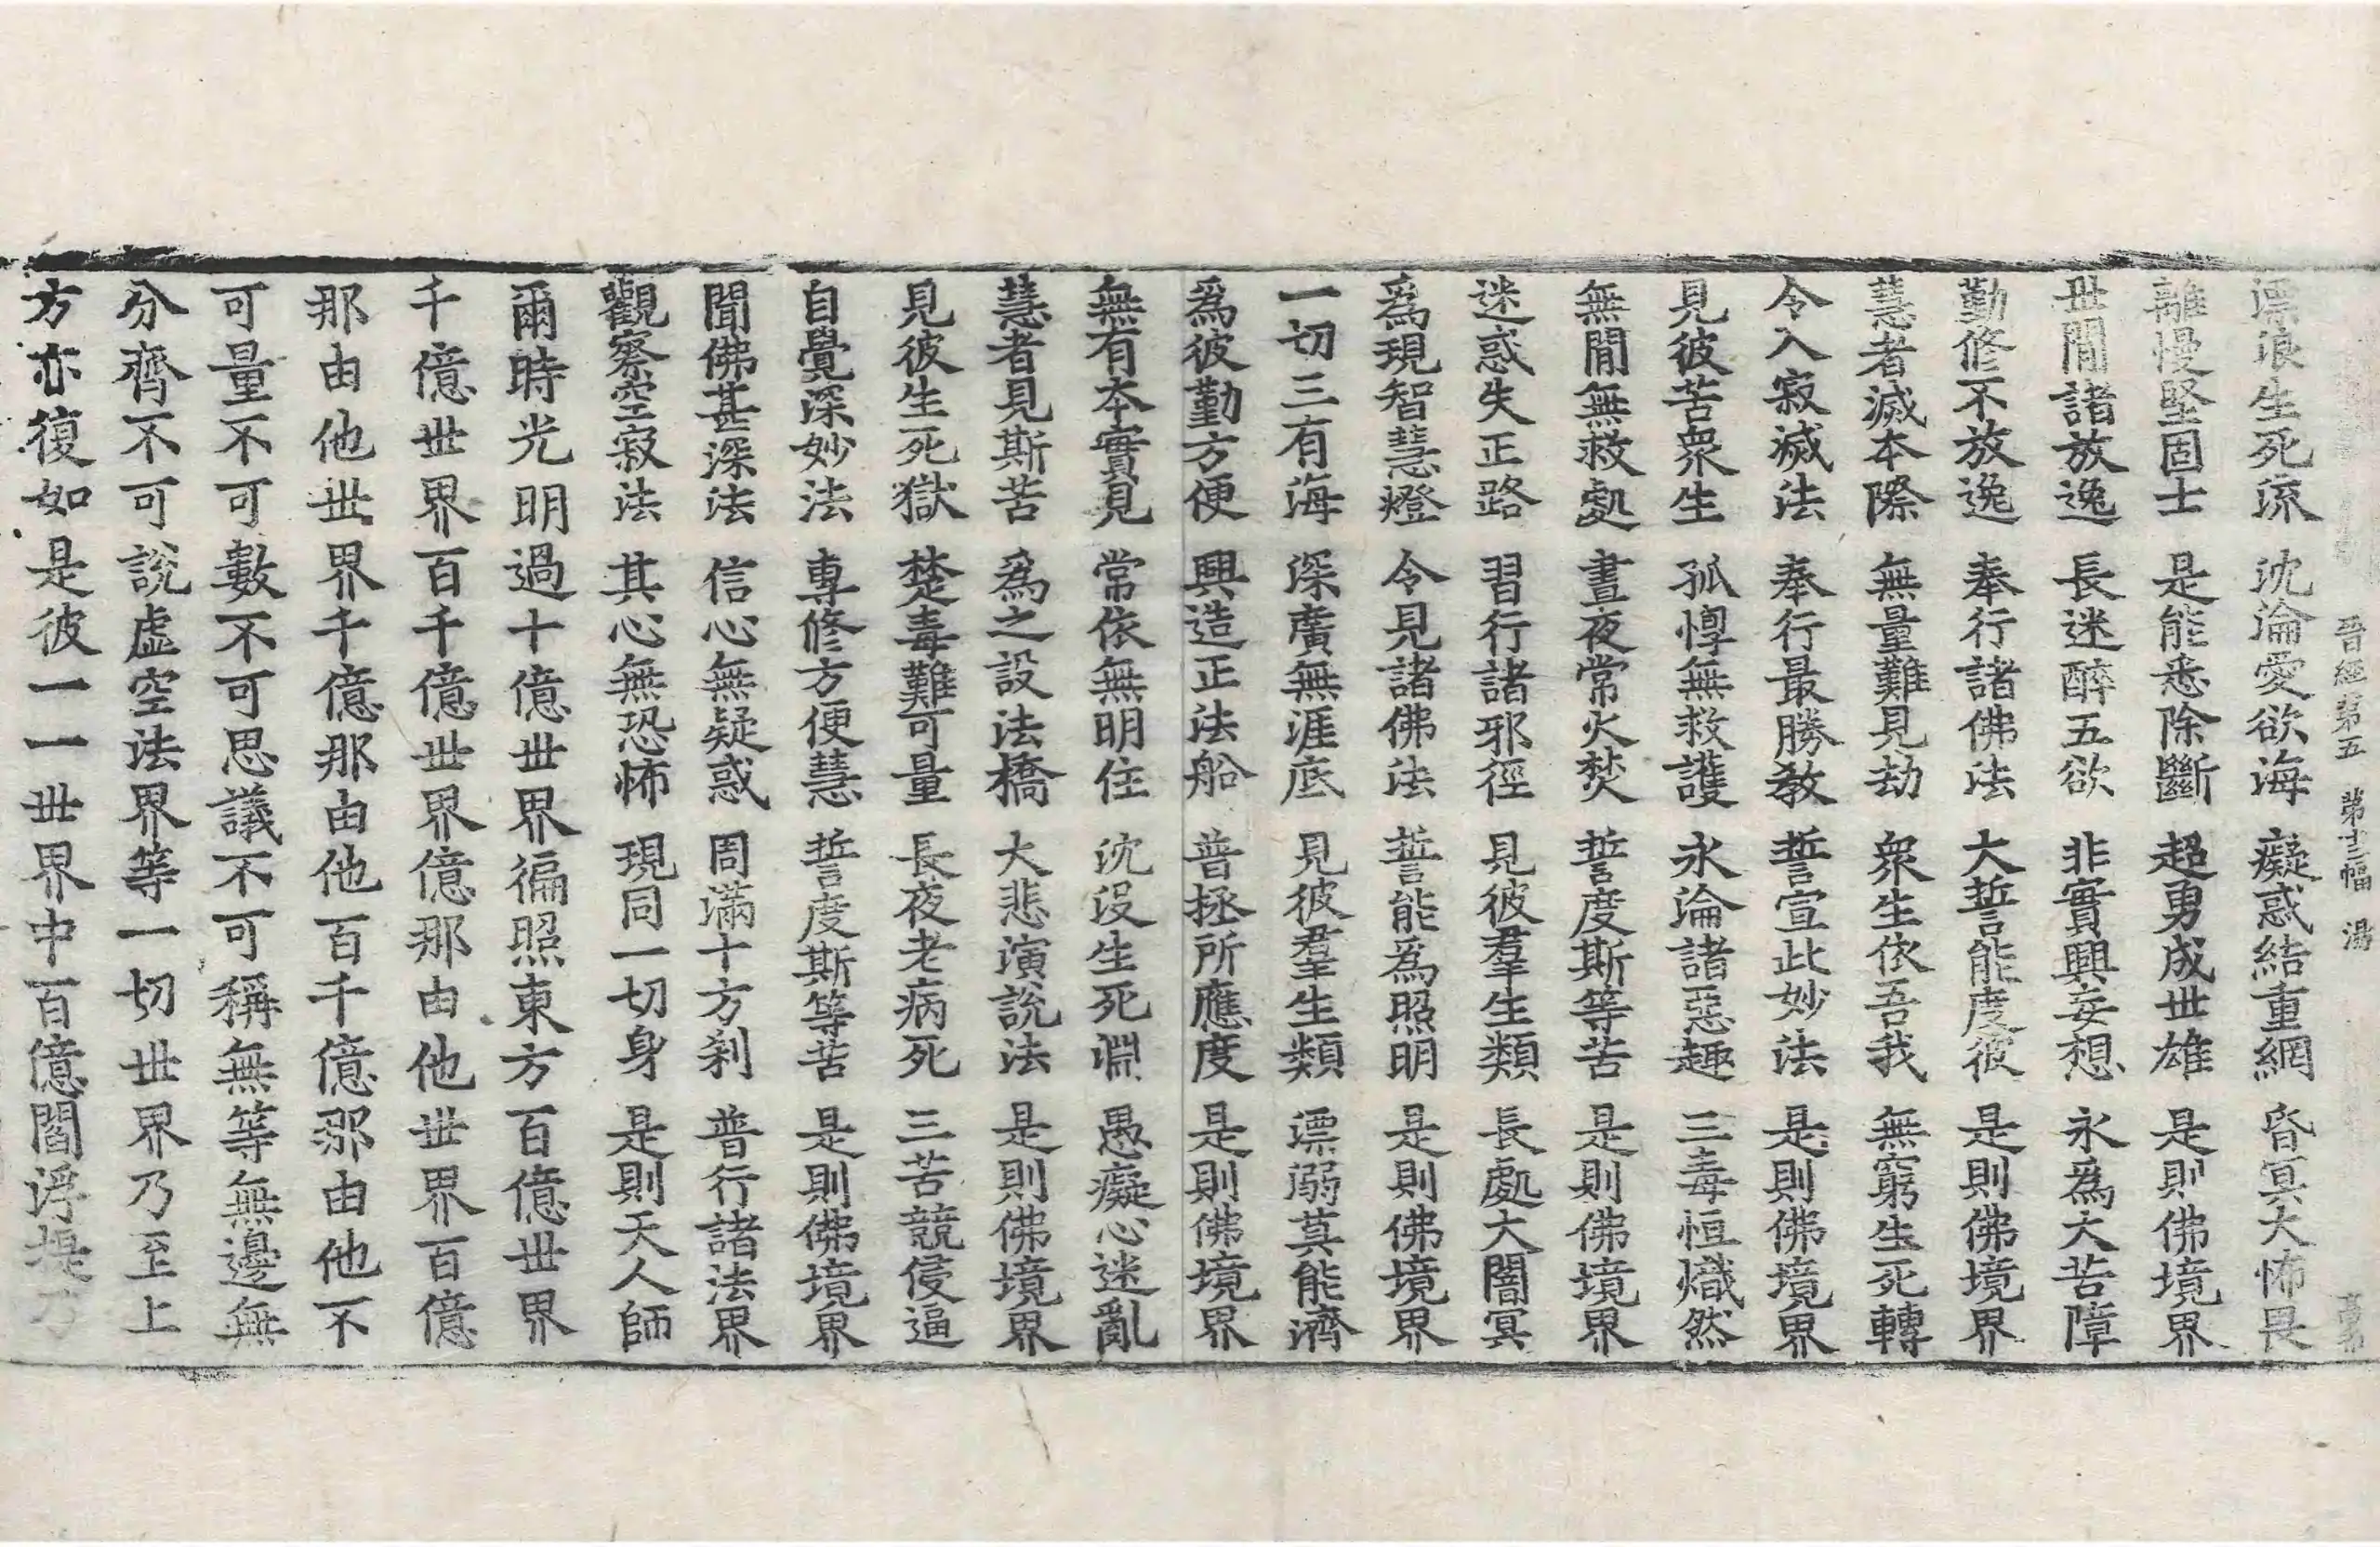 晉經第五　第十二幅　湯
漂浪生死流　沈淪愛欲海　癡惑結重網　昏冥大怖畏
離慢堅固士　是能悉除斷　超勇成世雄　是則佛境界
世閒諸放逸　長迷醉五欲　非實興妄想　永爲大苦障
勤修不放逸　奉行諸佛法　大誓能度彼　是則佛境界
慧者滅本際　無量難見劫　衆生依吾我　無窮生死轉
令入寂滅法　奉行最勝教　誓宣此妙法　是則佛境界
見彼苦衆生　孤惸無救護　永淪諸惡趣　三毒恒熾然
無閒無救處　晝夜常火焚　誓度斯等苦　是則佛境界
迷惑失正路　習行諸邪徑　見彼羣生類　長處大闇冥
爲現智慧燈　令見諸佛法　誓能爲照明　是則佛境界
一切三有海　深廣無涯底　見彼羣生類　漂溺莫能濟
爲彼勤方便　興造正法船　普拯所應度　是則佛境界
無有本實見　常依無明住　沈沒生死淵　愚癡心迷亂
慧者見斯苦　爲之設法橋　大悲演說法　是則佛境界
見彼生死獄　楚毒難可量　長夜老病死　三苦競侵逼
自覺深妙法　專修方便慧　誓度斯等苦　是則佛境界
聞佛甚深法　信心無疑惑　周滿十方剎　普行諸法界
觀察空寂法　其心無恐怖　現同一切身　是則天人師
爾時光明過十億世界徧照東方百億世界
千億世界百千億世界億那由他世界百億
那由他世界千億那由他百千億那由他不
可量不可數不可思議不可稱無等無邊無
分齊不可說虛空法界等一切世界乃至上
方亦復如是彼一一世界中百億閻浮提乃